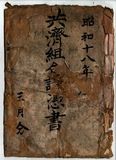 昭和十八年
共済組合証憑書
三月分